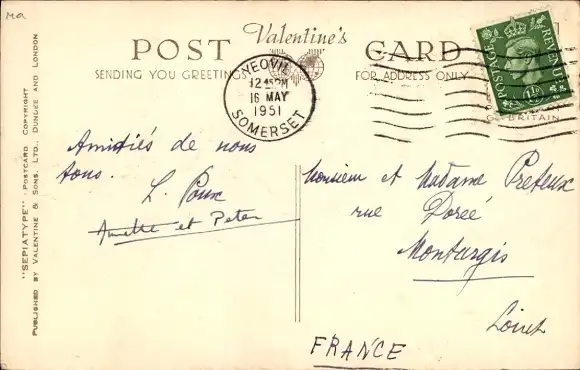 Ma
POST Valentine's CARD
SENDING YOU GREETINGS FOR ADDRESS ONLY
YEOVIL
12 45 PM
16 MAY
1951
SOMERSET
POSTAGE REVENUE
1½D
GT. BRITAIN
"SEPIATYPE" POSTCARD. COPYRIGHT
PUBLISHED BY VALENTINE & SONS, LTD., DUNDEE AND LONDON
Amitiés de nous
tous.
L. Poux
Annette et Peter
Monsieur et Madame Preteux
rue Dorée
Montargis
Loiret
FRANCE